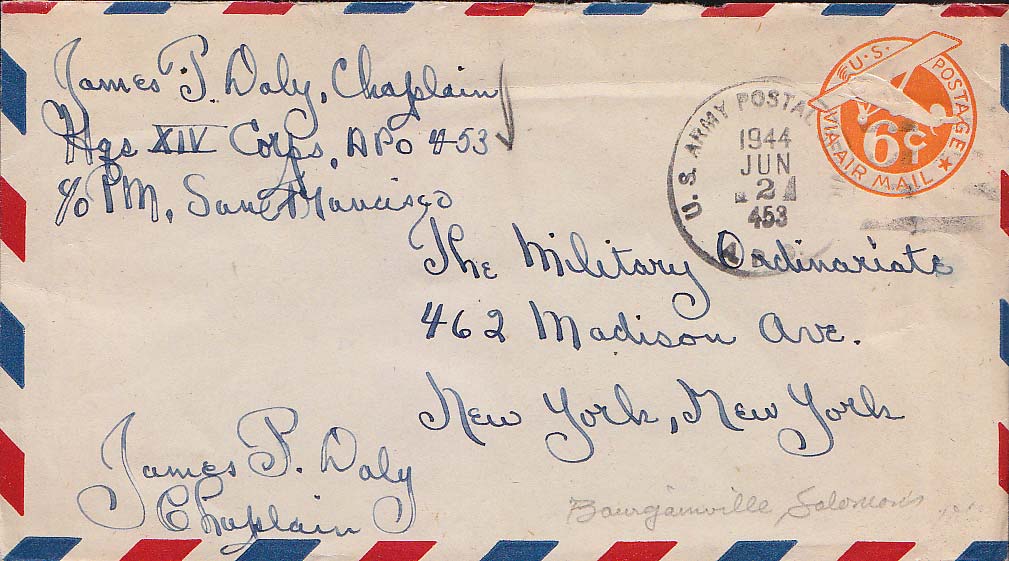 James P. Daly, Chaplain
Hqs XIV Corps, APO 453
c/o PM, San Francisco
U.S. POSTAGE
VIA AIR MAIL
6¢
U. S. ARMY POSTAL
1944
JUN
2
453
The Military Ordinariate
462 Madison Ave.
New York, New York
James P. Daly
Chaplain
Bourgainville Solomons